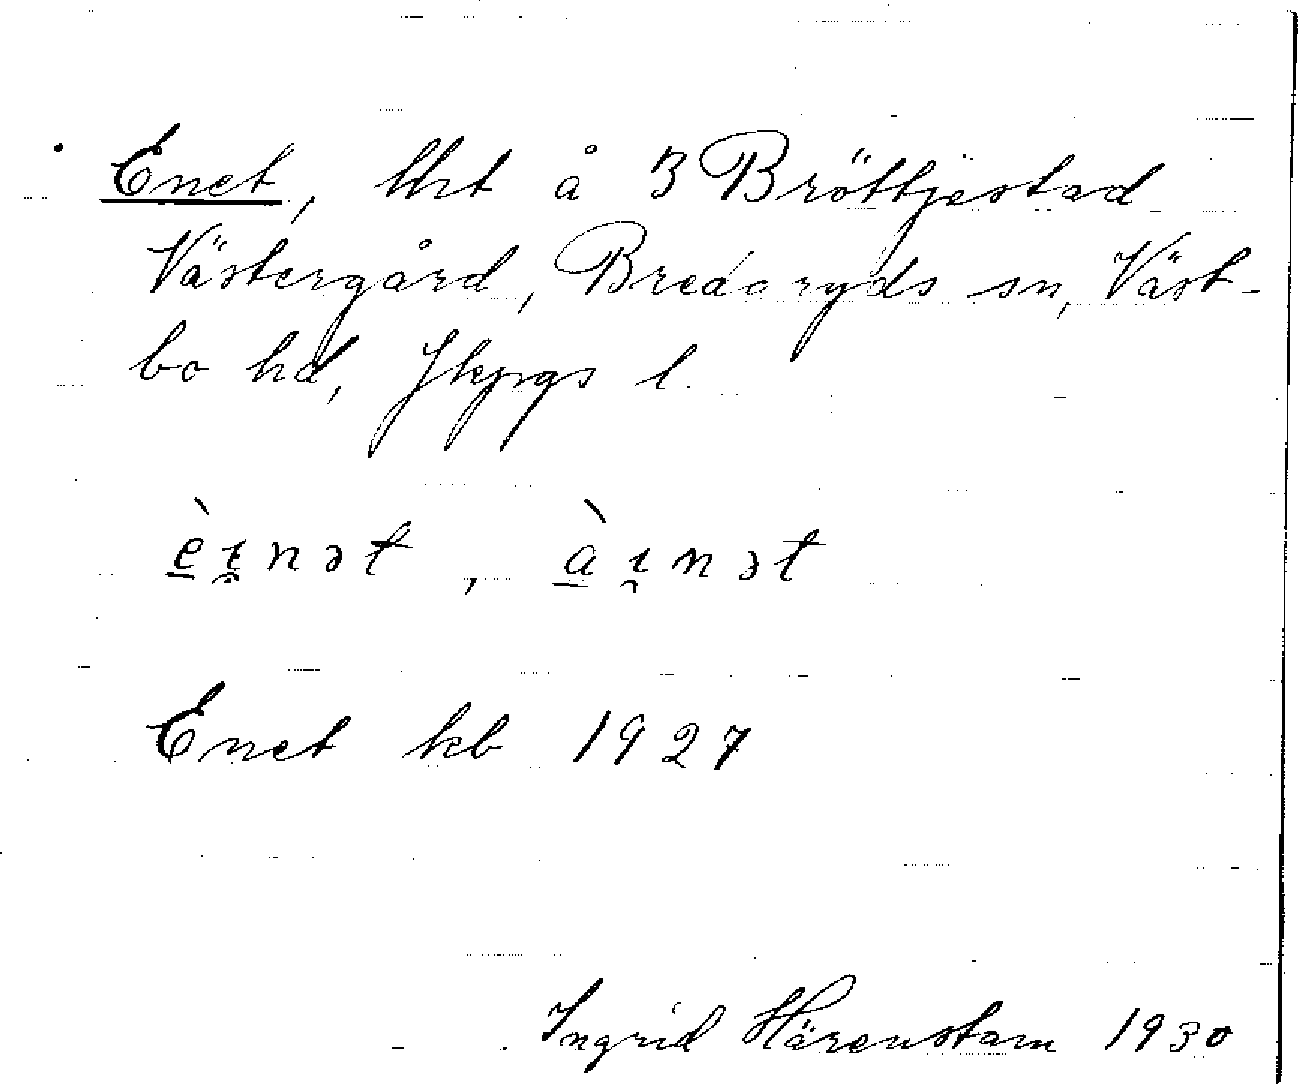 Enet, lht å 3 Bröttjestad
Västergård, Bredaryds sn, Väst-
bo hd, Jkpgs l.
è̱ɪ̯nət, à̱ɪ̯nət
Enet kb 1927
Ingrid Härenstam 1930